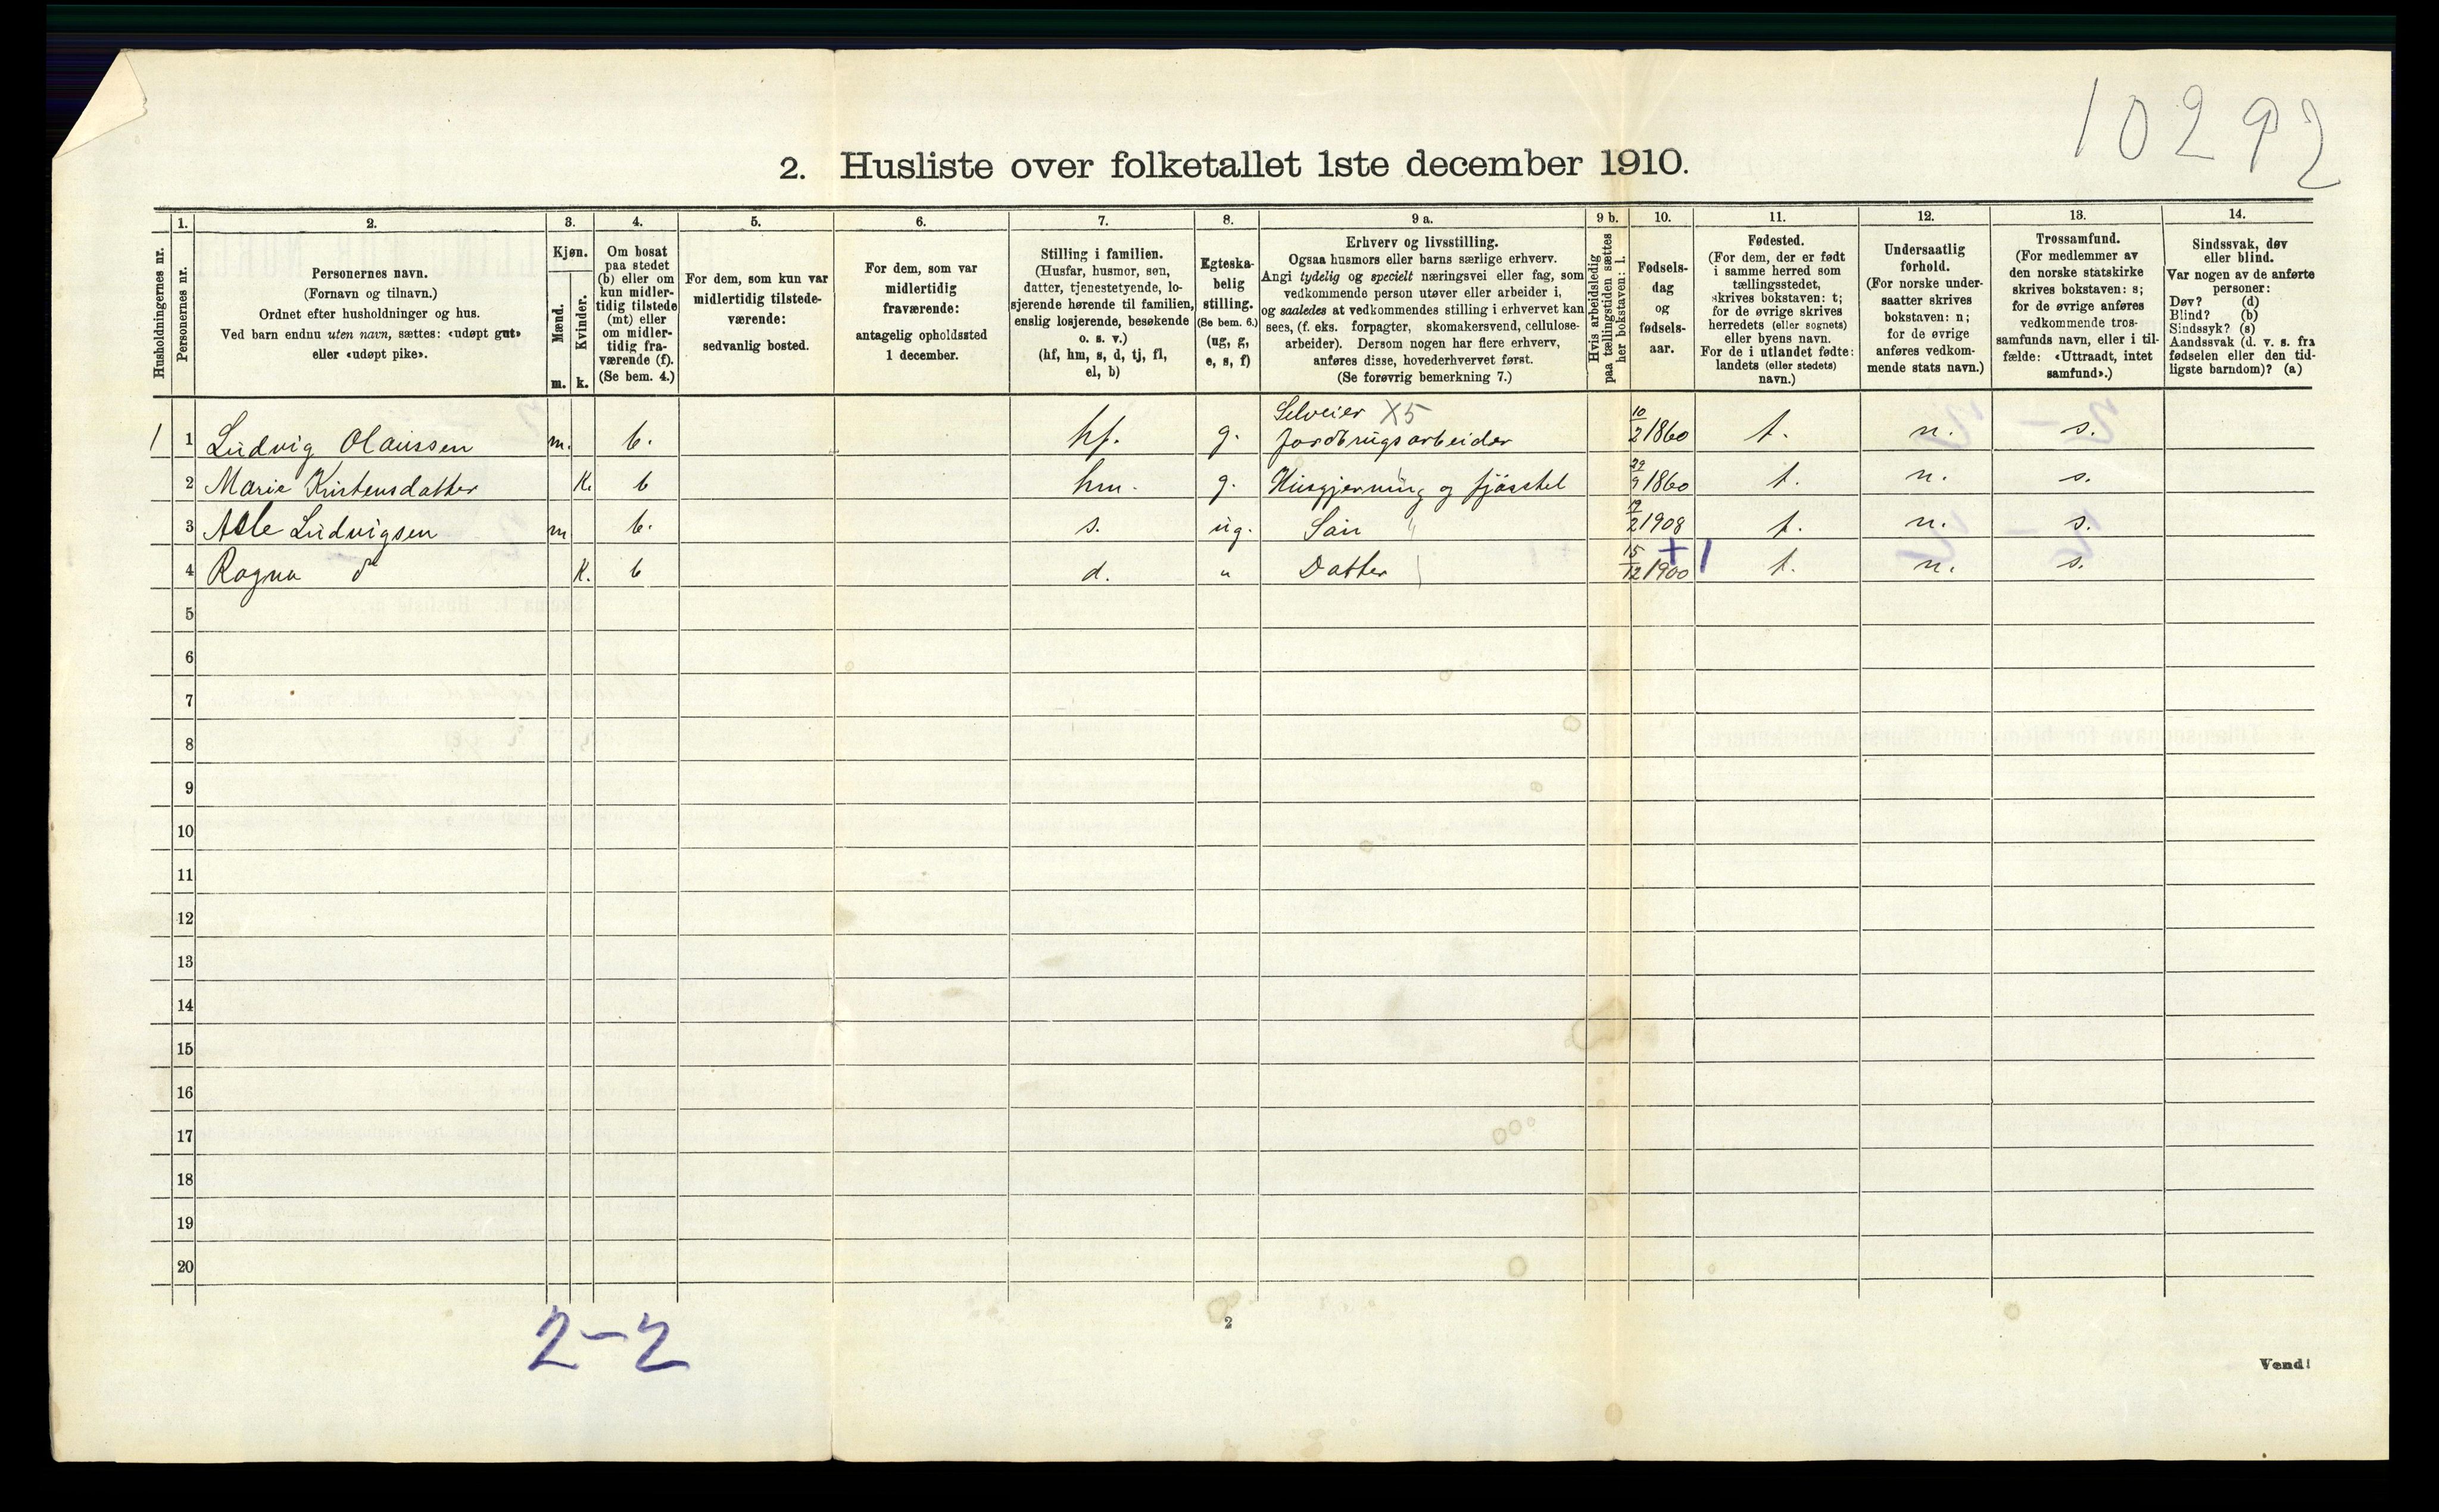 10292
2. Husliste over folketallet 1ste december 1910.
Husholdningernes nr.
1.
Personernes nr.
2.
Personernes navn.
(Fornavn og tilnavn.)
Ordnet efter husholdninger og hus.
Ved barn endnu uten navn, sættes: «udøpt gut»
eller «udøpt pike».
3.
Kjøn.
Mænd.
m.
Kvinder.
k.
4.
Om bosat
paa stedet
(b) eller om
kun midler-
tidig tilstede
(mt) eller
om midler-
tidig fra-
værende (f).
(Se bem. 4.)
5.
For dem, som kun var
midlertidig tilstede-
værende:
sedvanlig bosted.
6.
For dem, som var
midlertidig
fraværende:
antagelig opholdssted
1 december.
7.
Stilling i familien.
(Husfar, husmor, søn,
datter, tjenestetyende, lo-
sjerende hørende til familien,
enslig losjerende, besøkende
o. s. v.)
(hf, hm, s, d, tj, fl,
el, b)
8.
Egteska-
belig
stilling.
(Se bem. 6.)
(ug, g,
e, s, f)
9 a.
Erhverv og livsstilling.
Ogsaa husmors eller barns særlige erhverv.
Angi tydelig og specielt næringsvei eller fag, som
vedkommende person utøver eller arbeider i,
og saaledes at vedkommendes stilling i erhvervet kan
sees, (f. eks. forpagter, skomakersvend, cellulose-
arbeider). Dersom nogen har flere erhverv,
anføres disse, hovederhvervet først.
(Se forøvrig bemerkning 7.)
9 b.
Hvis arbeidsledig
paa tællingstiden sættes
her bokstaven: l.
10.
Fødsels-
dag
og
fødsels-
aar.
11.
Fødested.
(For dem, der er født
i samme herred som
tællingsstedet,
skrives bokstaven: t;
for de øvrige skrives
herredets (eller sognets)
eller byens navn.
For de i utlandet fødte:
landets (eller stedets)
navn.)
12.
Undersaatlig
forhold.
(For norske under-
saatter skrives
bokstaven: n;
for de øvrige
anføres vedkom-
mende stats navn.)
13.
Trossamfund.
(For medlemmer av
den norske statskirke
skrives bokstaven: s;
for de øvrige anføres
vedkommende tros-
samfunds navn, eller i til-
fælde: «Uttraadt, intet
samfund».)
14.
Sindssvak, døv
eller blind.
Var nogen av de anførte
personer:
Døv? (d)
Blind? (b)
Sindssyk? (s)
Aandssvak (d. v. s. fra
fødselen eller den tid-
ligste barndom)? (a)
Selveier X5
1 1 Ludvig Olaussen m. b. hf. g. jordbrugsarbeider 10/2 1860 t. n. s.
2 Marie Kristensdatter K. b hm. g. Husgjerning og fjøsstel 29/9 1860 t. n. s.
3 Asle Ludvigsen m b. s. ug. Søn 12/2 1908 t. n. s.
4 Ragna do K. b d. " Datter 15/12 1900 +1 t. n. s.
5
6
7
8
9
10
11
12
13
14
15
16
17
18
19
20
2-2
2
Vend!